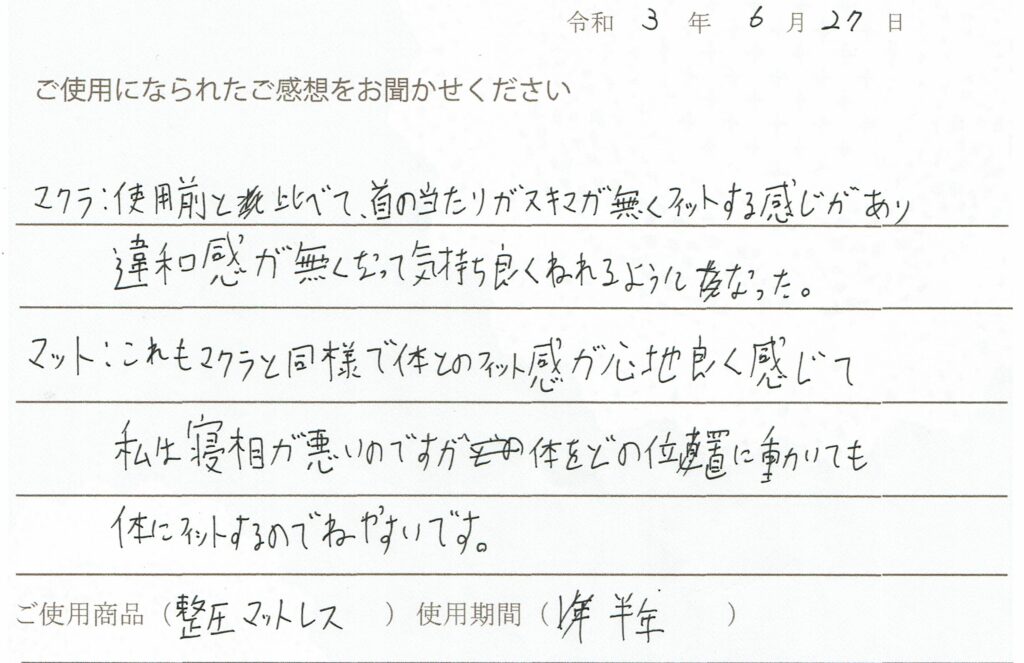 令和 3 年 6 月 27 日
ご使用になられたご感想をお聞かせください
マクラ:使用前と比べて、首の当たりがスキマが無くフィットする感じがあり
違和感が無くなって気持ち良くねれるようになった。
マット:これもマクラと同様で体とのフィット感が心地良く感じて
私は寝相が悪いのですが体をどの位置に動いても
体にフィットするのでねやすいです。
ご使用商品(整圧マットレス)使用期間(1年半年)